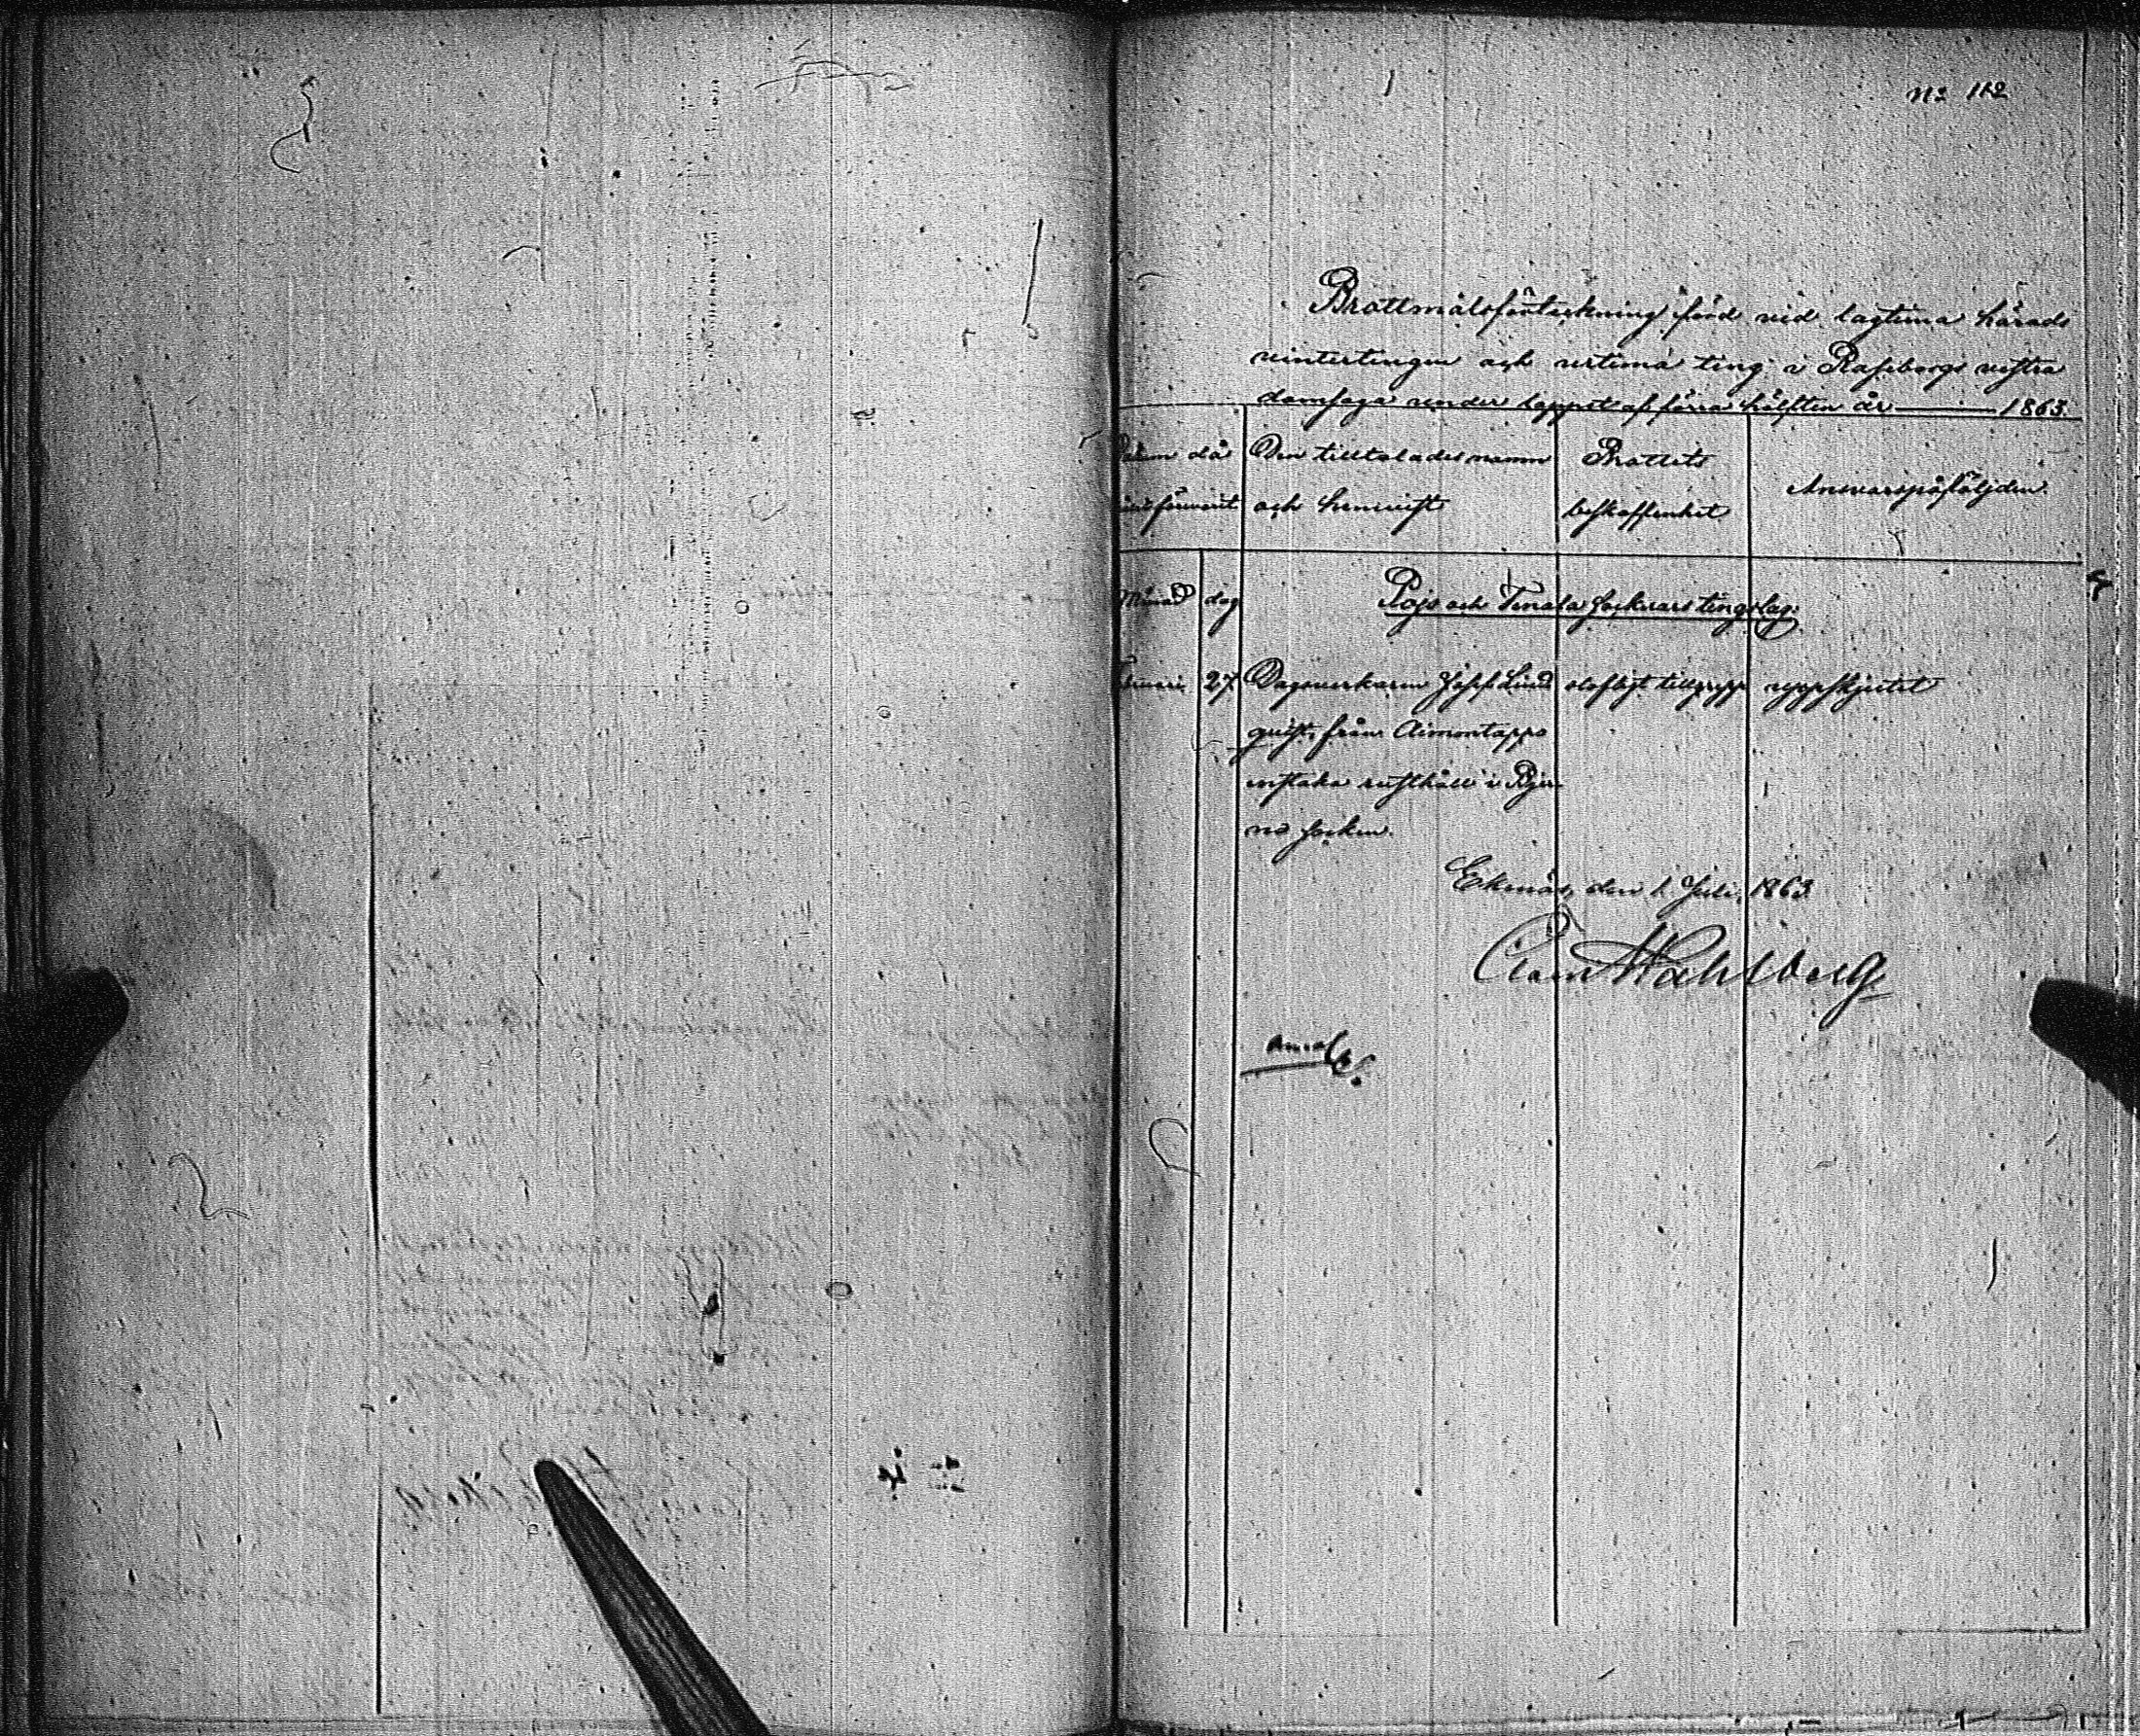 No 112
Brottmålsförteckning förd vid lagtima härads
vintertingen och urtima ting i Raseborgs vestra
domsaga under loppet af förra hälften år 1863.
då
Den tilltalades namn
och hemvist
Brottets
beskaffenhet
Ansvarspåföljden.
Månad
dag
Pojo och Tenala socknars tingslag.
Februari
27
Dagsverkaren Josef Lind
qvist, från Aimontappo
rusthåll i Bjer
no socken.
olofligt tillgrepp
uppskjutet
Ekenäs, den 1 Juli 1863
Claes Wahlberg